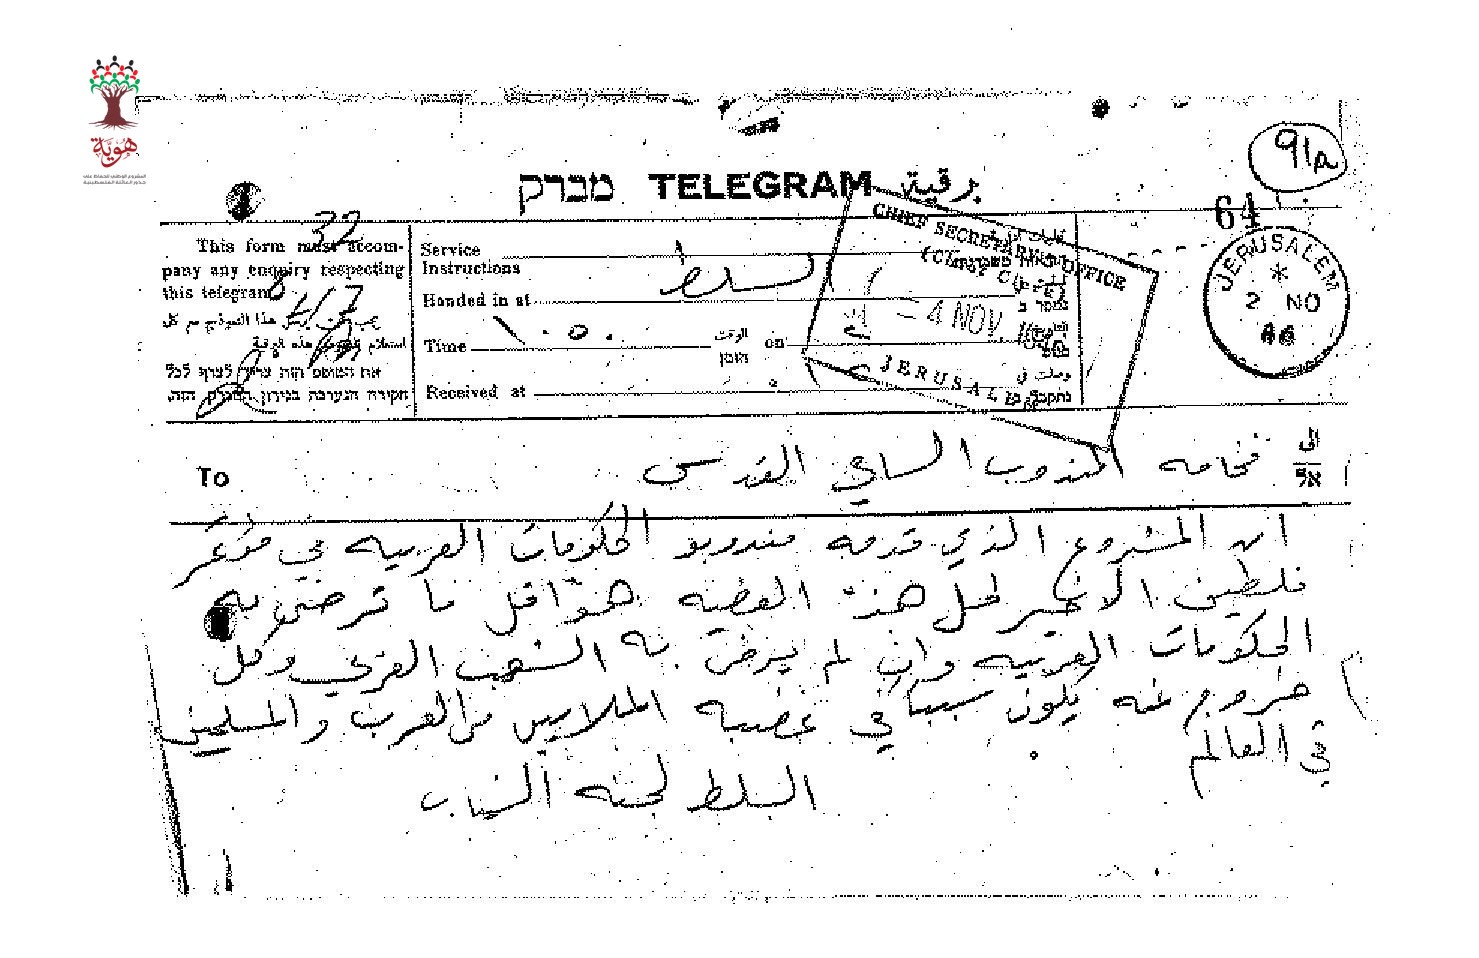 هوية
المشروع الوطني للحفاظ على
جذور العائلة الفلسطينية
91A
מברק TELEGRAM برقية
64
32
This form must accom-
pany any enquiry respecting
this telegram
يجب تقديم هذا النموذج مع كل
استعلام بخصوص هذه البرقية
את הטופס הזה צריך לצרף לכל
חקירה הנערכת בנידון המברק הזה.
Service
Instructions
Handed in at السلط
Time ١٠٥٠ الوقت הזמן on
Received at
وصلت في
נתקבל ב
CHIEF SECRETARY'S OFFICE
- 4 NOV.
JERUSALEM
JERUSALEM
2 NO
46
To فخامه المندوب السامي القدس الى אל
ان المشروع الذي قدمه مندوبو الحكومات العربيه في مؤتمر
فلسطين الاخير لحل هذه القضيه هو اقل ما ترضى به
الحكومات العربيه وان لم يرض به الشعب العربي وكل
خروج عنه يكون سببا في غضبه الملايين من العرب والمسلمين
في العالم
السلط لجنه الشباب